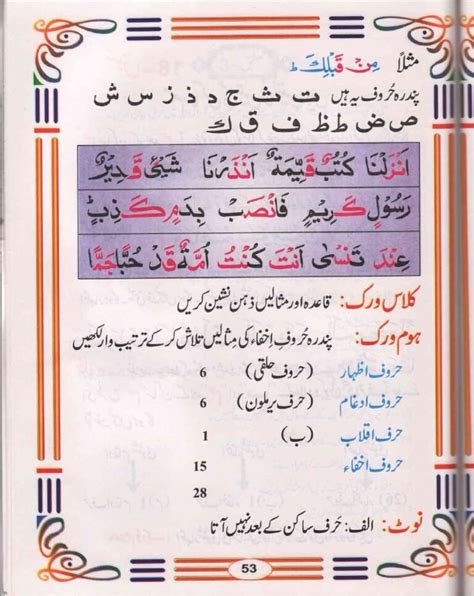 مثلاً مِنْ قَبْلِكَ ط
پندرہ حُروف یہ ہیں ت ث ج د ذ ز س ش
ص ض ط ظ ف ق ك
اَنْزَلْنَا كُتُبٌ قَيِّمَةٌ اَنْذَرْنَا شَيْئٍ قَدِيْرٌ
رَسُوْلٍ كَرِيْمٍ فَانْصَبْ بِدَمٍ كَذِبٍ
عِنْدَ تَنْسٰى اَنْتَ كُنْتُ اُمَّةٌ قَدْ حُبًّا جَمًّا
کلاس ورک: قاعدہ اور مثالیں ذہن نشین کریں
ہوم ورک: پندرہ حُروفِ اِخفاء کی مِثالیں تلاش کر کے ترتیب وار لکھیں
حروف اظہار (حروف حلقی) 6
حروف ادغام (حرف یرملون) 6
حروف اقلاب (ب) 1
حروف اخفاء 15
28
نوٹ: الف: حَرف سَاکن کے بعد نہیں آتا
53